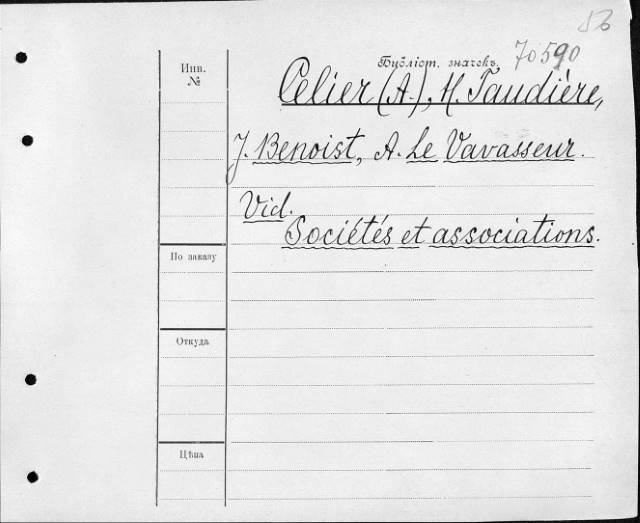 53
Библіот. значекъ. 70590
Инв.
№
Celier (A.), H. Taudière,
J. Benoist, A. Le Vavasseur.
Vid.
Sociétés et associations.
По заказу
Откуда
Цѣна